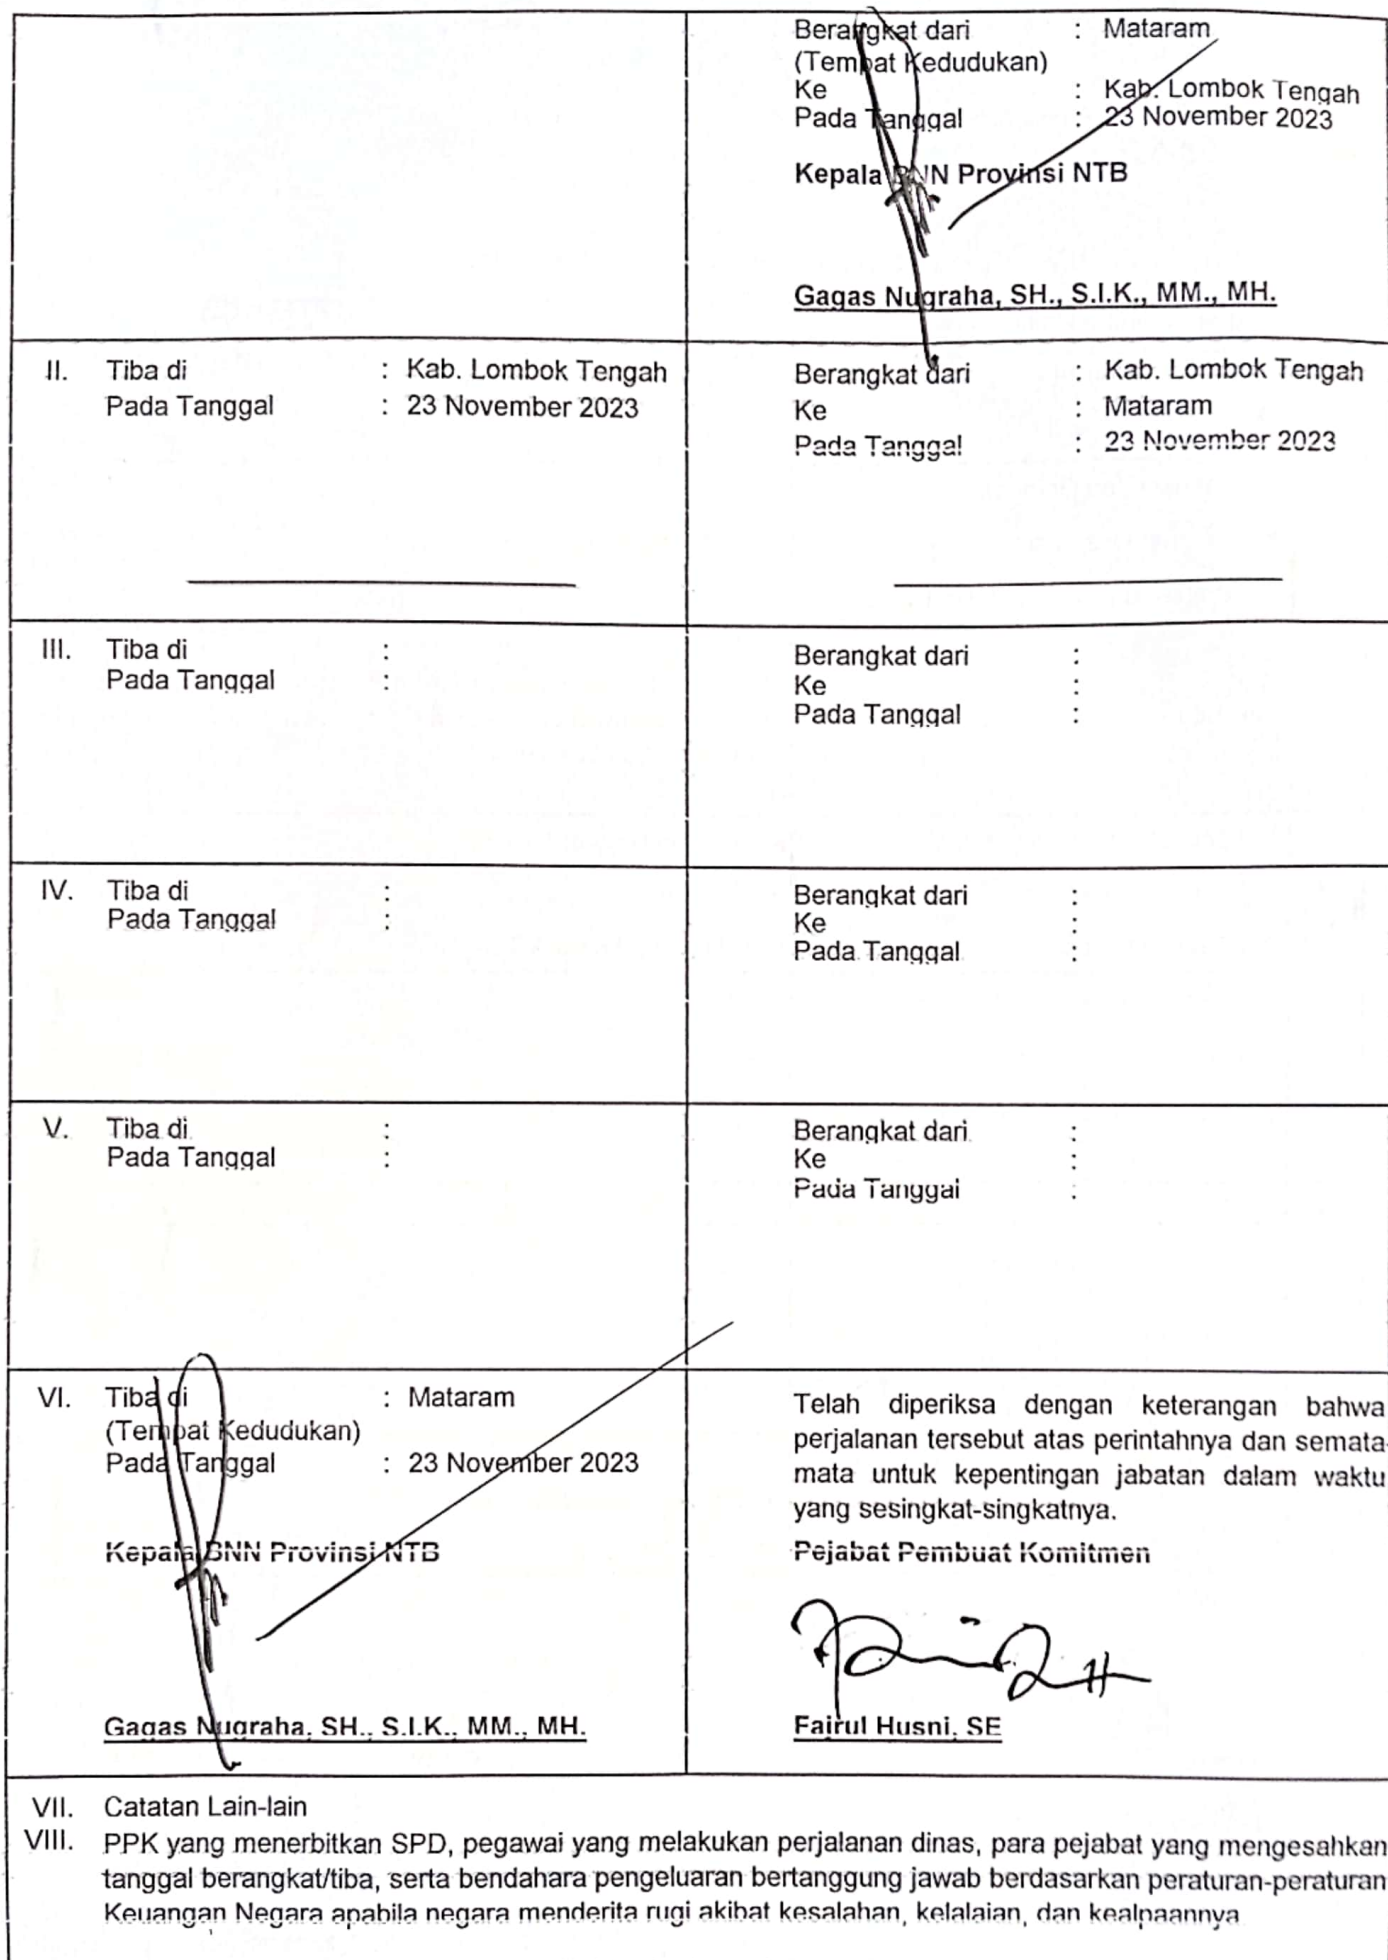 Berangkat dari : Mataram
(Tempat Kedudukan)
Ke : Kab. Lombok Tengah
Pada Tanggal : 23 November 2023
Kepala BNN Provinsi NTB
Gagas Nugraha, SH., S.I.K., MM., MH.
II. Tiba di : Kab. Lombok Tengah
Pada Tanggal : 23 November 2023
Berangkat dari : Kab. Lombok Tengah
Ke : Mataram
Pada Tanggal : 23 November 2023
III. Tiba di :
Pada Tanggal :
Berangkat dari :
Ke :
Pada Tanggal :
IV. Tiba di :
Pada Tanggal :
Berangkat dari :
Ke :
Pada Tanggal :
V. Tiba di :
Pada Tanggal :
Berangkat dari :
Ke :
Pada Tanggal :
VI. Tiba di : Mataram
(Tempat Kedudukan)
Pada Tanggal : 23 November 2023
Kepala BNN Provinsi NTB
Gagas Nugraha, SH., S.I.K., MM., MH.
Telah diperiksa dengan keterangan bahwa
perjalanan tersebut atas perintahnya dan semata-
mata untuk kepentingan jabatan dalam waktu
yang sesingkat-singkatnya.
Pejabat Pembuat Komitmen
Fairul Husni, SE
VII. Catatan Lain-lain
VIII. PPK yang menerbitkan SPD, pegawai yang melakukan perjalanan dinas, para pejabat yang mengesahkan
tanggal berangkat/tiba, serta bendahara pengeluaran bertanggung jawab berdasarkan peraturan-peraturan
Keuangan Negara apabila negara menderita rugi akibat kesalahan, kelalaian, dan kealpaannya